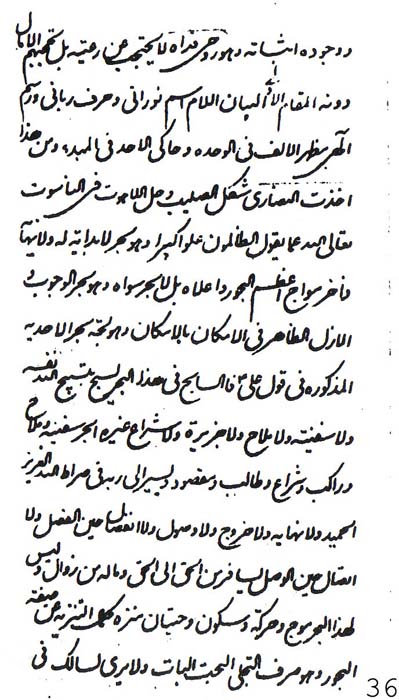 ووجوده اثباته وهو روحی فداه لا یحتجب عن رعیته بل تحجبهم الآمال
دونه المقام الألف البیان اللام اسم نورانی وحرف ربانی ورسم
الهی مظهر الالف فی الوحده وحاکی الاحد فی المبدء ومن هذا
اخذت النصاری شکل الصلیب وحل اللاهوت فی الناسوت
تعالی الله عما یقول الظالمون علوا کبیرا وهو بحر لا بدایة له ولا نهایة
وآخر مواج اعظم البحور واعلاه بل لا بحر سواه وهو بحر الوجوب فی
الازل الظاهر فی الامکان بالامکان وهو لجة بحر الاحدیه
المذکوره فی قول علی ع فالسابح فی هذا البحر یسبح بتسبیح الله نفسه
ولا سفینته ولا ملاح ولا جزیرة ولا شراع غیره البحر سفینه وملاح
وراکب وشراع وطالب ومقصود ویسیر الی ربه فی صراط الله العزیز
الحمید ولا نهایه ولا خروج ولا وصول ولا انفصال حین الفصل ولا
اتصال حین الوصل یسافر من الحق الی الحق وماله من زوال ولیس
لهذا البحر موج وحرکة وسکون وحیتان منزه کمال التنزیه عن صفة
البحور وهو صرف التجلی البحت البات ولا یری لسالک فی
36